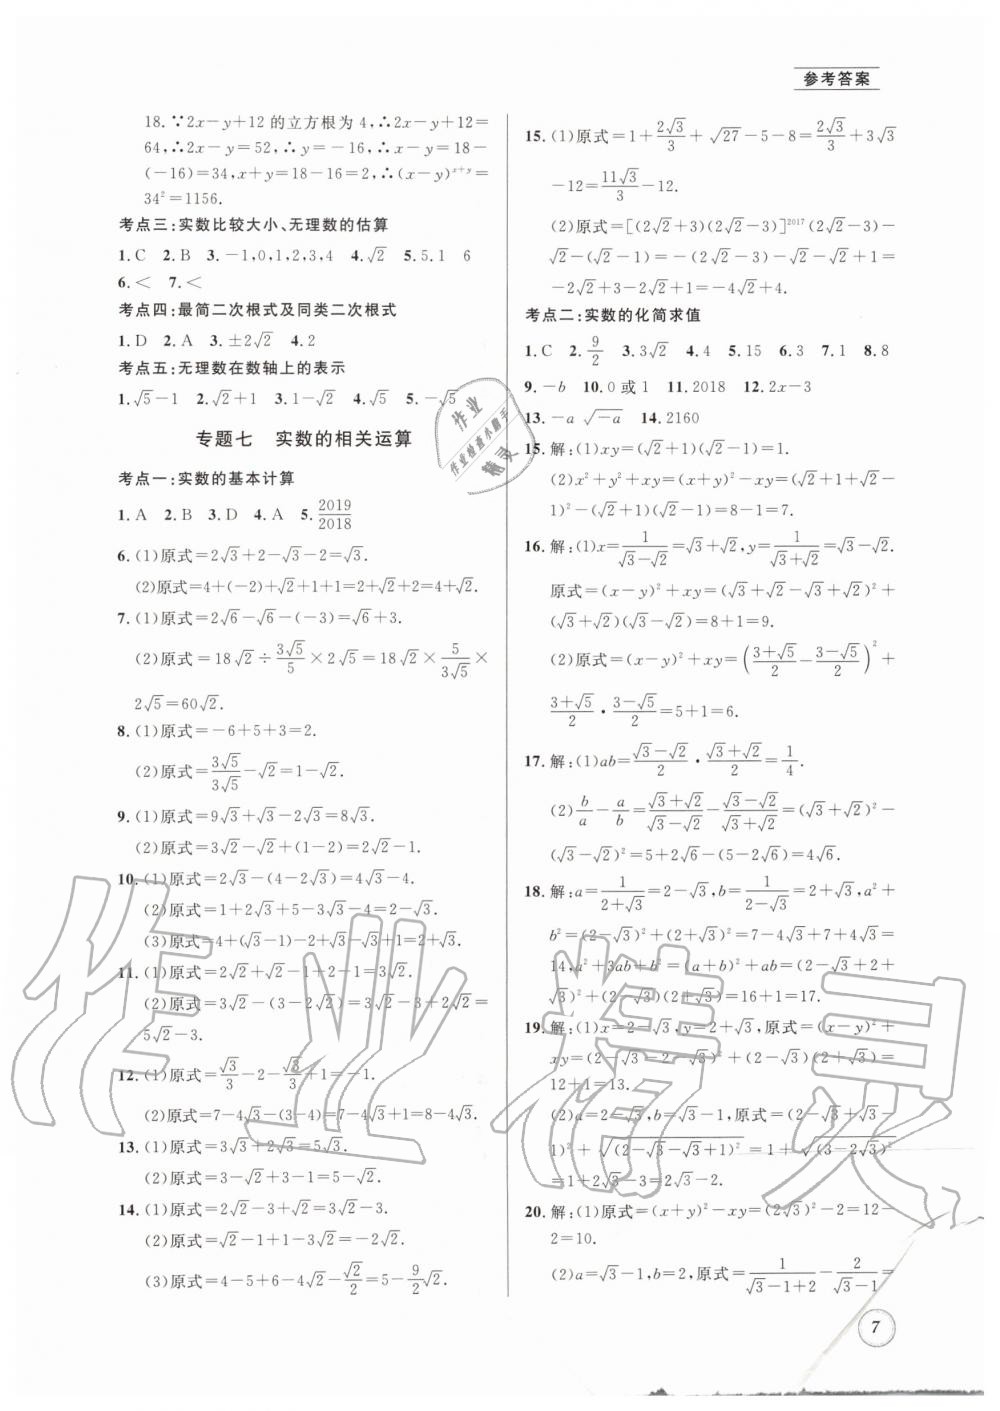 参考答案
18.∵2x-y+12的立方根为4,∴2x-y+12=
64,∴2x-y=52,∴y=-16,∴x-y=18-
(-16)=34,x+y=18-16=2,∴(x-y)^{x+y}=
34²=1156.
考点三:实数比较大小、无理数的估算
1.C 2.B 3.-1,0,1,2,3,4 4.√2 5.5.1 6
6.< 7.<
考点四:最简二次根式及同类二次根式
1.D 2.A 3.±2√2 4.2
考点五:无理数在数轴上的表示
1.√5-1 2.√2+1 3.1-√2 4.√5 5.-√5
专题七 实数的相关运算
考点一:实数的基本计算
1.A 2.B 3.D 4.A 5.2019/2018
6.(1)原式=2√3+2-√3-2=√3.
(2)原式=4+(-2)+√2+1+1=4+√2.
7.(1)原式=2√6-√6-(-3)=√6+3.
(2)原式=18√2÷3√5/5×2√5=18√2×5/3√5×
2√5=60√2.
8.(1)原式=-6+5+3=2.
(2)原式=3√5/3√5-√2=1-√2.
9.(1)原式=9√3+√3-2√3=8√3.
(2)原式=3√2-√2+(1-2)=2√2-1.
10.(1)原式=2√3-(4-2√3)=4√3-4.
(2)原式=1+2√3+5-3√3-4=2-√3.
(3)原式=4+(√3-1)-2+√3-√3+1=2+√3.
11.(1)原式=2√2+√2-1=3√2-1.
(2)原式=3√2-(3-2√2)=3√2-3+2√2=
5√2-3.
12.(1)原式=√3/3-2-√3/3+1=-1.
(2)原式=7-4√3-(3-4)=7-4√3+1=8-4√3.
13.(1)原式=3√3+2√3=5√3.
(2)原式=3-√2+3-1=5-√2.
14.(1)原式=2√3-3+√3=3√3-3.
(2)原式=√2-1+1-3√2=-2√2.
(3)原式=4-5+6-4√2-√2/2=5-9/2√2.
15.(1)原式=1+2√3/3+√27-5-8=2√3/3+3√3
-12=11√3/3-12.
(2)原式=[(2√2+3)(2√2-3)]²⁰¹⁷(2√2-3)-
√2-(√2-1)=-(2√2-3)-√2-√2+1=
-2√2+3-2√2+1=-4√2+4.
考点二:实数的化简求值
1.C 2.9/2 3.3√2 4.4 5.15 6.3 7.1 8.8
9.-b 10.0或1 11.2018 12.2x-3
13.-a√-a 14.2160
15.解:(1)xy=(√2+1)(√2-1)=1.
(2)x²+y²+xy=(x+y)²-xy=(√2+1+√2-
1)²-(√2+1)(√2-1)=8-1=7.
16.解:(1)x=1/(√3-√2)=√3+√2,y=1/(√3+√2)=√3-√2.
原式=(x-y)²+xy=(√3+√2-√3+√2)²+
(√3+√2)(√3-√2)=8+1=9.
(2)原式=(x-y)²+xy=((3+√5)/2-(3-√5)/2)²+
(3+√5)/2·(3-√5)/2=5+1=6.
17.解:(1)ab=(√3-√2)/2·(√3+√2)/2=1/4.
(2)b/a-a/b=(√3+√2)/(√3-√2)-(√3-√2)/(√3+√2)=(√3+√2)²-
(√3-√2)²=5+2√6-(5-2√6)=4√6.
18.解:a=1/(2+√3)=2-√3,b=1/(2-√3)=2+√3,a²+
b²=(2-√3)²+(2+√3)²=7-4√3+7+4√3=
14,a²+3ab+b²=(a+b)²+ab=(2-√3+2+
√3)²+(2-√3)(2+√3)=16+1=17.
19.解:(1)x=2-√3,y=2+√3,原式=(x-y)²+
xy=(2-√3-2-√3)²+(2-√3)(2+√3)=
12+1=13.
(2)a=2-√3,b=√3-1,原式=(2-√3+√3-
1)²+√(2-√3-√3+1)²=1+√(3-2√3)²
=1+2√3-3=2√3-2.
20.解:(1)原式=(x+y)²-xy=(2√3)²-2=12-
2=10.
(2)a=√3-1,b=2,原式=1/(√3-1+2)-2/(√3-1)=
7
作业
作业检查小助手
精灵
作业精灵